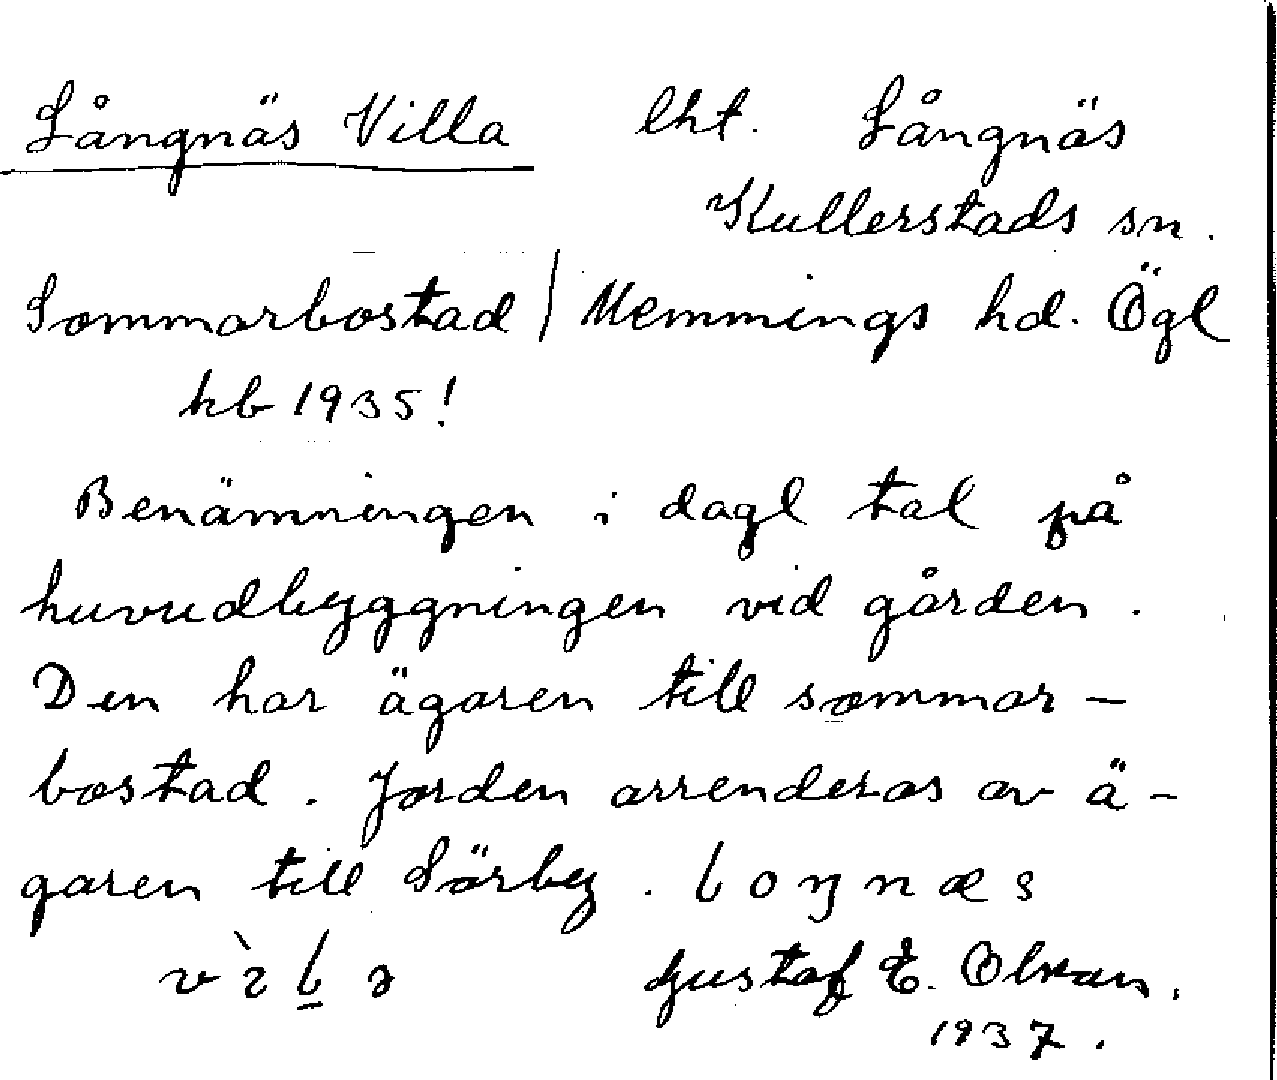 Långnäs Villa lht. Långnäs
Kullerstads sn.
Sommarbostad / Memmings hd. Ögl
kb 1935!
Benämningen i dagl tal på
huvudbyggningen vid gården.
Den har ägaren till sommar-
bostad. Jorden arrenderas av ä-
garen till Sörby. loŋnæs
Gustaf E. Olsson.
1937.